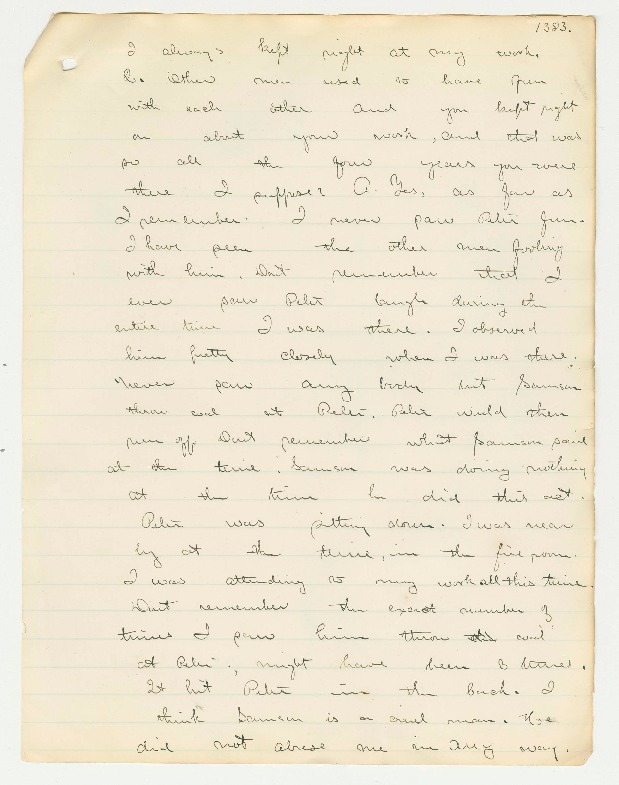 1383.
I always kept right at my work.
Q. Other men used to have fun
with each other and you kept right
on about your work, and that was
so all the four years you were
there I suppose? A. Yes, as far as
I remember. I never saw Peter fun.
I have seen the other men fooling
with him. Dont remember that I
ever saw Peter laugh during the
entire time I was there. I observed
him pretty closely when I was there.
Never saw any body but Samson
throw coal at Peter. Peter would then
run off. Dont remember what Samson said
at the time. Samson was doing nothing
at the time he did this act.
Peter was sitting down. I was near
by at the time, in the fire room.
I was attending to my work all this time.
Dont remember the exact number of
times I saw him throw this coal
at Peter, might have been 3 times.
It hit Peter in the back. I
think Samson is a cruel man. He
did not abuse me in any way.